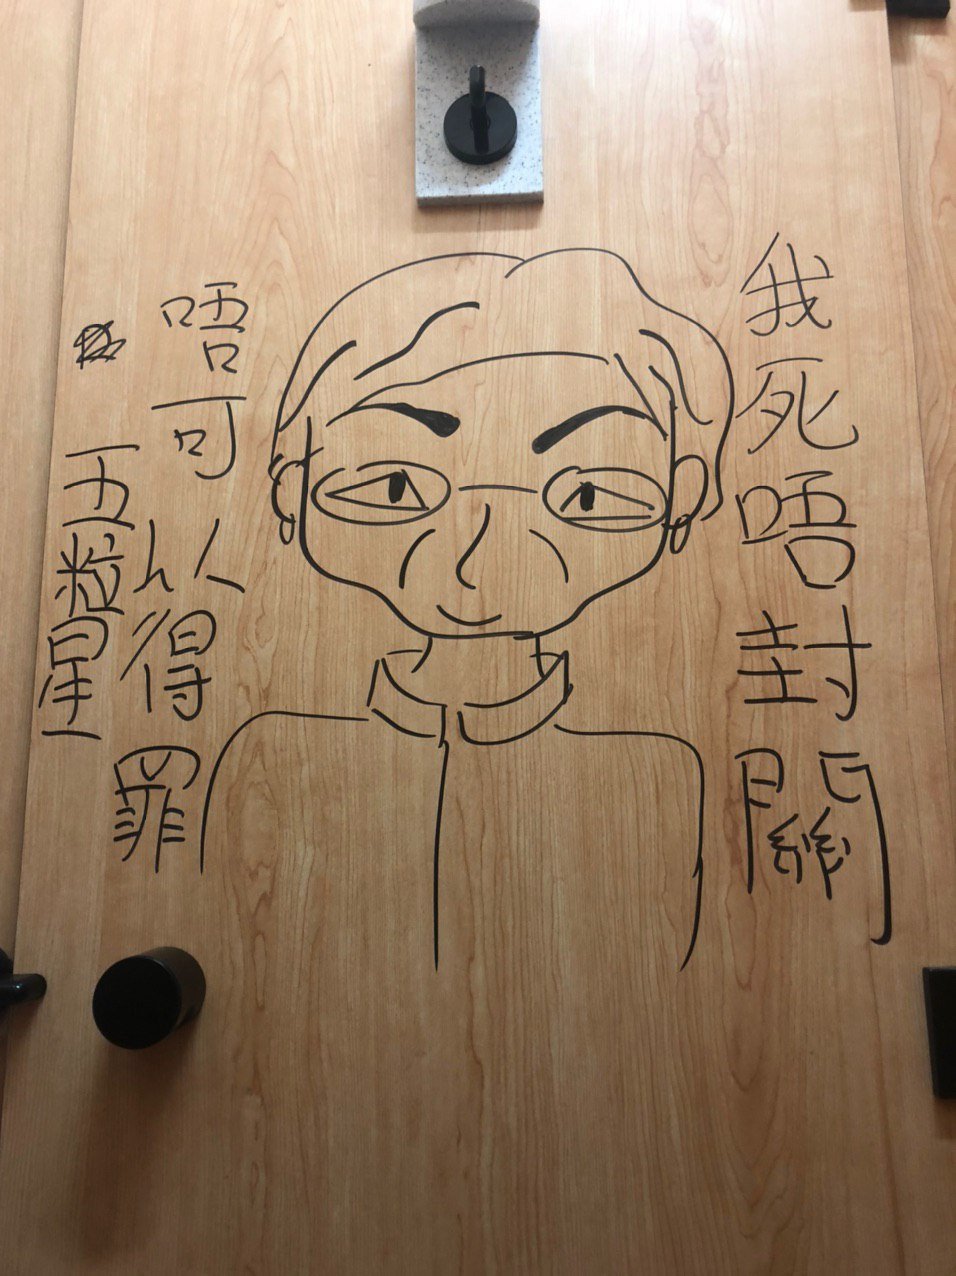 我死唔封關
唔可以得罪
五粒星